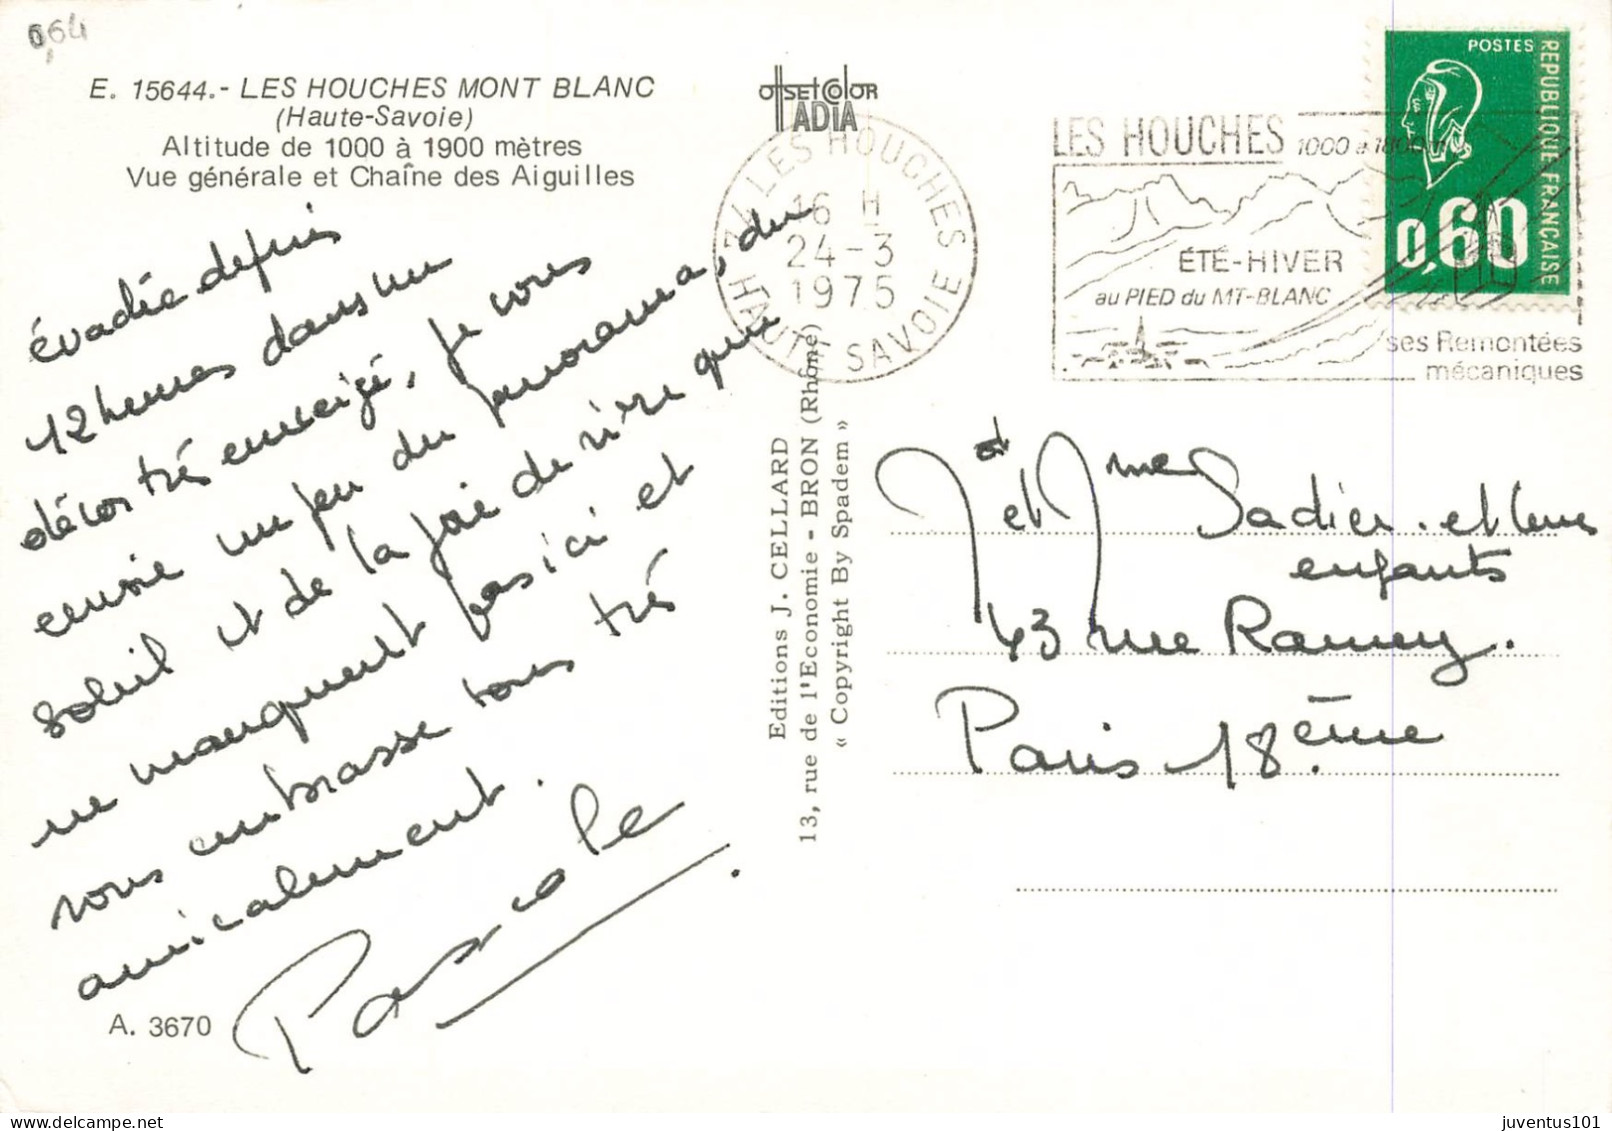 0,64
E. 15644.- LES HOUCHES MONT BLANC
(Haute-Savoie)
Altitude de 1000 à 1900 mètres
Vue générale et Chaîne des Aiguilles
évadée depuis
12 heures dans un
décor très enneigé, je vous
envoie un peu du panorama, du
soleil et de la joie de vivre qui
ne manquent pas ici et
vous embrasse tous très
amicalement.
Pascale
A. 3670
offset color
IADIA
Editions J. CELLARD
13, rue de l'Economie - BRON (Rhône)
« Copyright By Spadem »
74 LES HOUCHES
16 H
24-3
1975
HAUTE SAVOIE
LES HOUCHES 1000 à 1800 m
ÉTÉ-HIVER
au PIED du MT-BLANC
ses Remontées
mécaniques
POSTES
REPUBLIQUE FRANÇAISE
0,60
et Mme Sadier et leurs
enfants
43 rue Ramey.
Paris 18.ème
juventus101